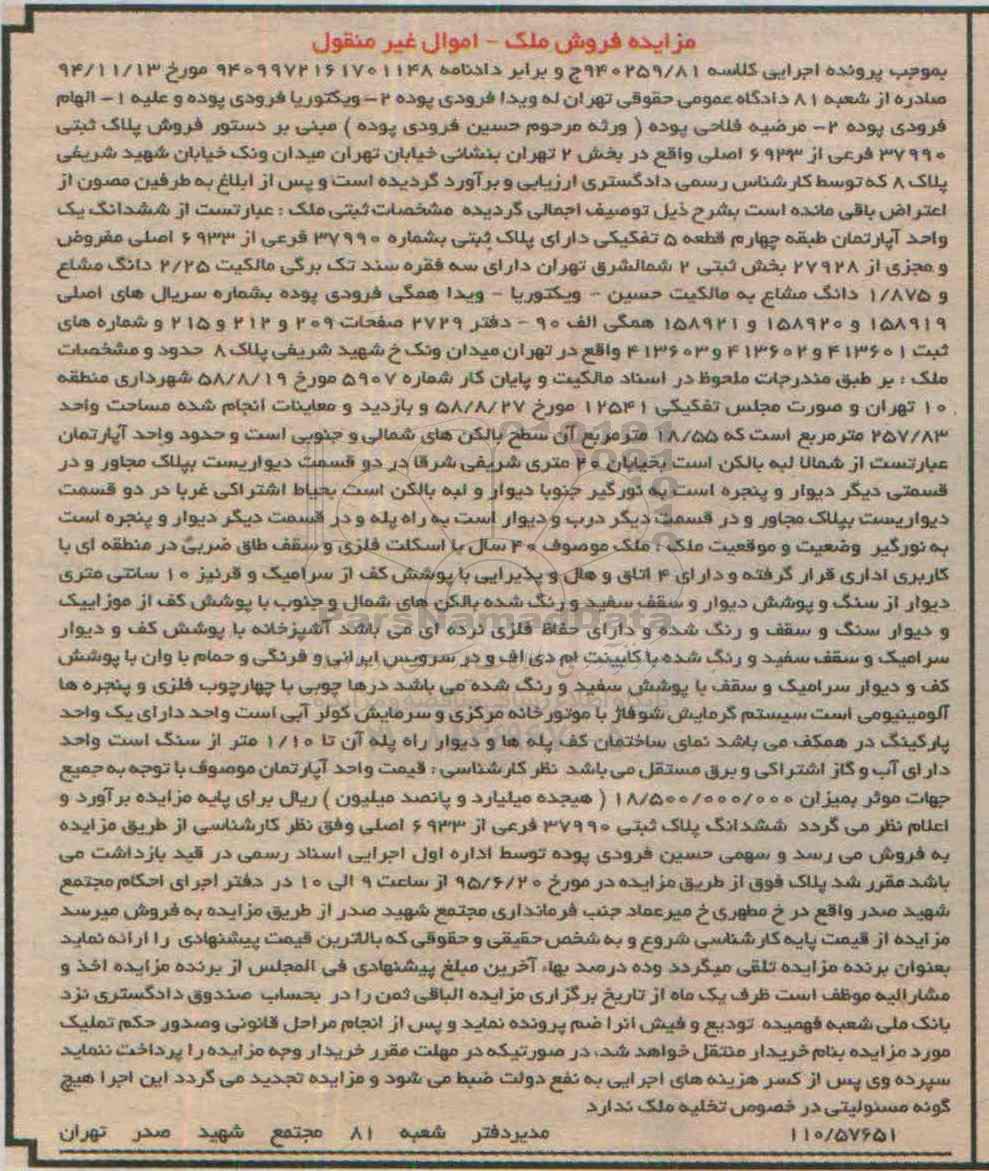 مزایده فروش ملک - اموال غیر منقول
بموجب پرونده اجرایی کلاسه ۹۴۰۲۵۹/۸۱ج و برابر دادنامه ۹۴۰۹۹۷۲۱۶۱۷۰۱۱۴۸ مورخ ۹۴/۱۱/۱۳
صادره از شعبه ۸۱ دادگاه عمومی حقوقی تهران له ویدا فرودی پوده ۲- ویکتوریا فرودی پوده و علیه ۱- الهام
فرودی پوده ۲- مرضیه فلاحی پوده ( ورثه مرحوم حسین فرودی پوده ) مبنی بر دستور فروش پلاک ثبتی
۳۷۹۹۰ فرعی از ۶۹۳۳ اصلی واقع در بخش ۲ تهران بنشانی خیابان تهران میدان ونک خیابان شهید شریفی
پلاک ۸ که توسط کارشناس رسمی دادگستری ارزیابی و برآورد گردیده است و پس از ابلاغ به طرفین مصون از
اعتراض باقی مانده است بشرح ذیل توصیف اجمالی گردیده مشخصات ثبتی ملک : عبارتست از ششدانگ یک
واحد آپارتمان طبقه چهارم قطعه ۵ تفکیکی دارای پلاک ثبتی بشماره ۳۷۹۹۰ فرعی از ۶۹۳۳ اصلی مفروض
و مجزی از ۲۷۹۲۸ بخش ثبتی ۲ شمالشرق تهران دارای سه فقره سند تک برگی مالکیت ۲/۲۵ دانگ مشاع
و ۱/۸۷۵ دانگ مشاع به مالکیت حسین - ویکتوریا - ویدا همگی فرودی پوده بشماره سریال های اصلی
۱۵۸۹۱۹ و ۱۵۸۹۲۰ و ۱۵۸۹۲۱ همگی الف ۹۰ - دفتر ۲۷۲۹ صفحات ۲۰۹ و ۲۱۲ و ۲۱۵ و شماره های
ثبت ۴۱۳۶۰۱ و ۴۱۳۶۰۲ و ۴۱۳۶۰۳ واقع در تهران میدان ونک خ شهید شریفی پلاک ۸ حدود و مشخصات
ملک : بر طبق مندرجات ملحوظ در اسناد مالکیت و پایان کار شماره ۵۹۰۷ مورخ ۵۸/۸/۱۹ شهرداری منطقه
۱۰ تهران و صورت مجلس تفکیکی ۱۲۵۴۱ مورخ ۵۸/۸/۲۷ و بازدید و معاینات انجام شده مساحت واحد
۲۵۷/۸۳ مترمربع است که ۱۸/۵۵ مترمربع آن سطح بالکن های شمالی و جنوبی است و حدود واحد آپارتمان
عبارتست از شمالا لبه بالکن است بخیابان ۲۰ متری شریفی شرقا در دو قسمت دیواریست بپلاک مجاور و در
قسمتی دیگر دیوار و پنجره است به نورگیر جنوبا دیوار و لبه بالکن است بحیاط اشتراکی غربا در دو قسمت
دیواریست بپلاک مجاور و در قسمت دیگر درب و دیوار است به راه پله و در قسمت دیگر دیوار و پنجره است
به نورگیر وضعیت و موقعیت ملک : ملک موصوف ۴۰ سال با اسکلت فلزی و سقف طاق ضربی در منطقه ای با
کاربری اداری قرار گرفته و دارای ۴ اتاق و هال و پذیرایی با پوشش کف از سرامیک و قرنیز ۱۰ سانتی متری
دیوار از سنگ و پوشش دیوار و سقف سفید و رنگ شده بالکن های شمال و جنوب با پوشش کف از موزاییک
و دیوار سنگ و سقف و رنگ شده و دارای حفاظ فلزی نرده ای می باشد آشپزخانه با پوشش کف و دیوار
سرامیک و سقف سفید و رنگ شده با کابینت ام دی اف و در سرویس ایرانی و فرنگی و حمام با وان با پوشش
کف و دیوار سرامیک و سقف با پوشش سفید و رنگ شده می باشد درها چوبی با چهارچوب فلزی و پنجره ها
آلومینیومی است سیستم گرمایش شوفاژ با موتورخانه مرکزی و سرمایش کولر آبی است واحد دارای یک واحد
پارکینگ در همکف می باشد نمای ساختمان کف پله ها و دیوار راه پله آن تا ۱/۱۰ متر از سنگ است واحد
دارای آب و گاز اشتراکی و برق مستقل می باشد نظر کارشناسی : قیمت واحد آپارتمان موصوف با توجه به جمیع
جهات موثر بمیزان ۱۸/۵۰۰/۰۰۰/۰۰۰ ( هیجده میلیارد و پانصد میلیون ) ریال برای پایه مزایده برآورد و
اعلام نظر می گردد ششدانگ پلاک ثبتی ۳۷۹۹۰ فرعی از ۶۹۳۳ اصلی وفق نظر کارشناسی از طریق مزایده
به فروش می رسد و سهمی حسین فرودی پوده توسط اداره اول اجرایی اسناد رسمی در قید بازداشت می
باشد مقرر شد پلاک فوق از طریق مزایده در مورخ ۹۵/۶/۲۰ از ساعت ۹ الی ۱۰ در دفتر اجرای احکام مجتمع
شهید صدر واقع در خ مطهری خ میرعماد جنب فرمانداری مجتمع شهید صدر از طریق مزایده به فروش میرسد
مزایده از قیمت پایه کارشناسی شروع و به شخص حقیقی و حقوقی که بالاترین قیمت پیشنهادی را ارائه نماید
بعنوان برنده مزایده تلقی میگردد وده درصد بهاء آخرین مبلغ پیشنهادی فی المجلس از برنده مزایده اخذ و
مشارالیه موظف است ظرف یک ماه از تاریخ برگزاری مزایده الباقی ثمن را در بحساب صندوق دادگستری نزد
بانک ملی شعبه فهمیده تودیع و فیش انرا ضم پرونده نماید و پس از انجام مراحل قانونی وصدور حکم تملیک
مورد مزایده بنام خریدار منتقل خواهد شد، در صورتیکه در مهلت مقرر خریدار وجه مزایده را پرداخت ننماید
سپرده وی پس از کسر هزینه های اجرایی به نفع دولت ضبط می شود و مزایده تجدید می گردد این اجرا هیچ
گونه مسئولیتی در خصوص تخلیه ملک ندارد
۱۱۰/۵۷۶۵۱ مدیردفتر شعبه ۸۱ مجتمع شهید صدر تهران
ParsNamadData